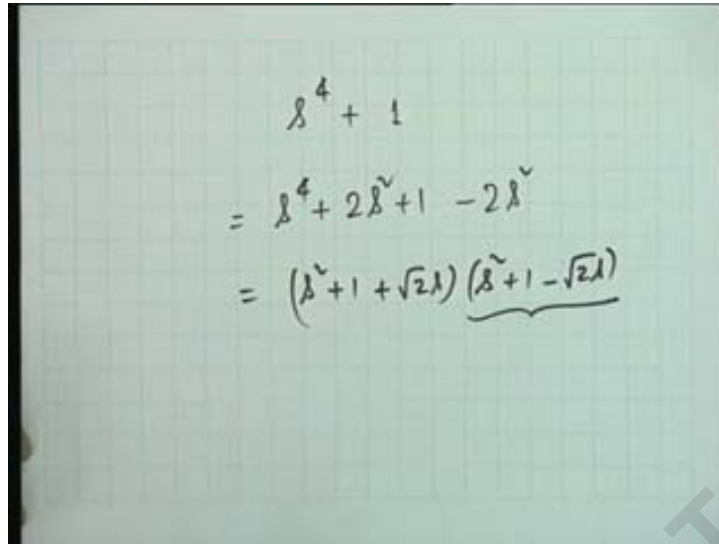 s⁴ + 1
= s⁴ + 2s² + 1 - 2s²
= (s² + 1 + √2s) (s² + 1 - √2s)
T